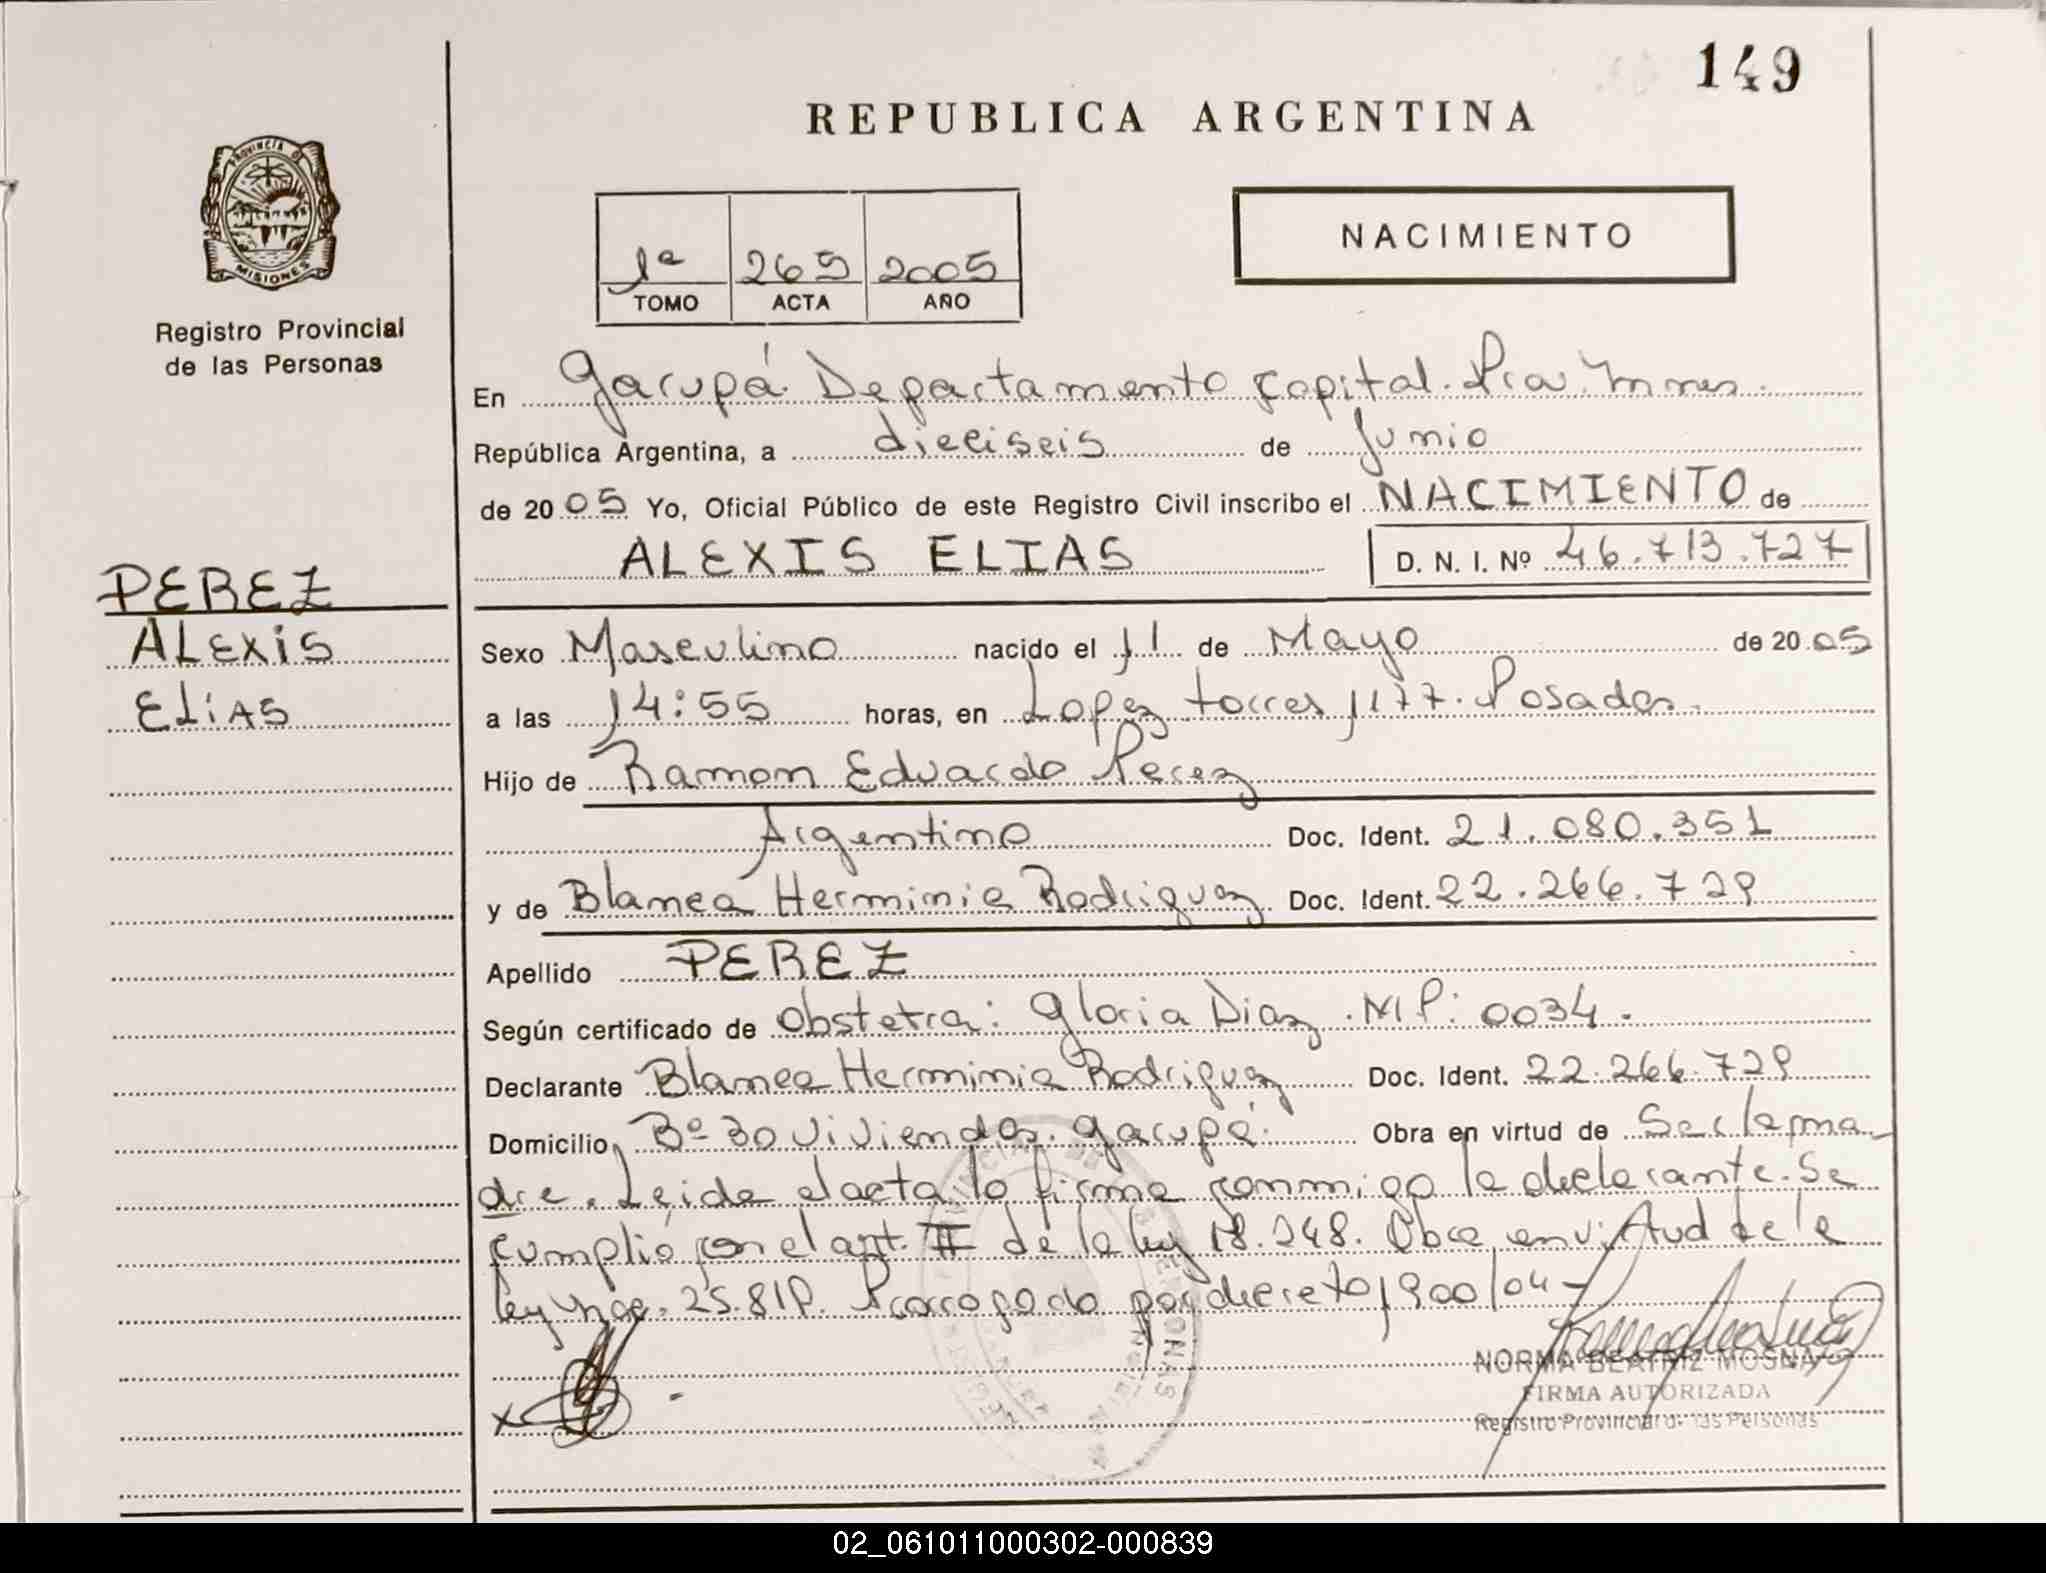 149
REPUBLICA ARGENTINA
PROVINCIA DE
MISIONES
Registro Provincial
de las Personas
1ª 265 2005
TOMO ACTA AÑO
NACIMIENTO
En Garupá. Departamento Capital. Pcia. Mnes.
República Argentina, a dieciseis de Junio
de 2005 Yo, Oficial Público de este Registro Civil inscribo el NACIMIENTO de
ALEXIS ELIAS D. N. I. Nº 46.713.727
PEREZ
ALEXIS
ELIAS
Sexo Masculino nacido el 11 de Mayo de 2005
a las 14:55 horas, en Lopez torres 1177. Posadas.
Hijo de Ramon Eduardo Perez
Argentino Doc. Ident. 21.080.351
y de Blanca Herminia Rodriguez Doc. Ident. 22.266.729
Apellido PEREZ
Según certificado de Obstetra: Gloria Diaz. MP: 0034.
Declarante Blanca Herminia Rodriguez Doc. Ident. 22.266.729
Domicilio Bº 30 viviendas. Garupá. Obra en virtud de Ser la ma
dre. Leida el acta la firma conmigo la declarante. Se
cumplió con el art. II de la ley 18.248. Obra en virtud de la
ley Nac. 25.819. Prorrogado por decreto 1900/04-
NORMA BEATRIZ MOSNA
FIRMA AUTORIZADA
Registro Provincial de las Personas
02_061011000302-000839